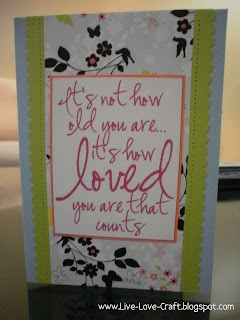 It's not how
old you are...
it's how
loved
you are that
counts
www.Live-Love-Craft.blogspot.com